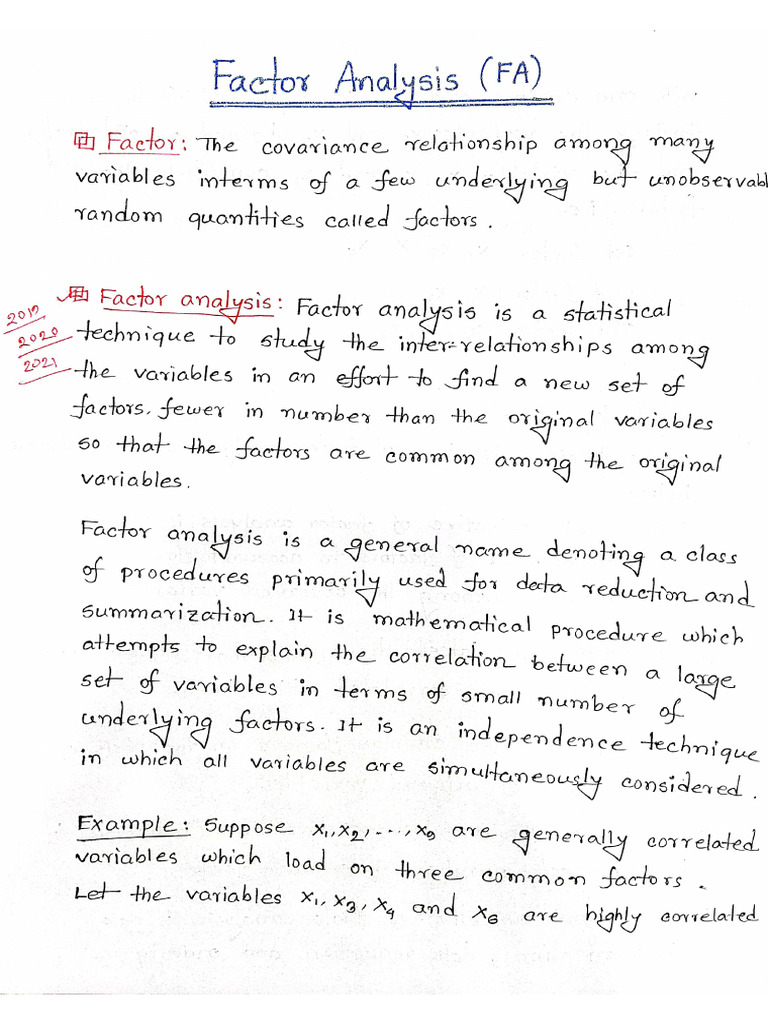 Factor Analysis (FA)
Factor: The covariance relationship among many
variables interms of a few underlying but unobservabl
random quantities called factors.
Factor analysis: Factor analysis is a statistical
2019
2020
2021
technique to study the inter-relationships among
the variables in an effort to find a new set of
factors, fewer in number than the original variables
so that the factors are common among the original
variables.
Factor analysis is a general name denoting a class
of procedures primarily used for data reduction and
summarization. It is mathematical procedure which
attempts to explain the correlation between a large
set of variables in terms of small number of
underlying factors. It is an independence technique
in which all variables are simultaneously considered.
Example: Suppose x₁, x₂, ..., x₉ are generally correlated
variables which load on three common factors.
Let the variables x₁, x₃, x₄ and x₆ are highly correlated